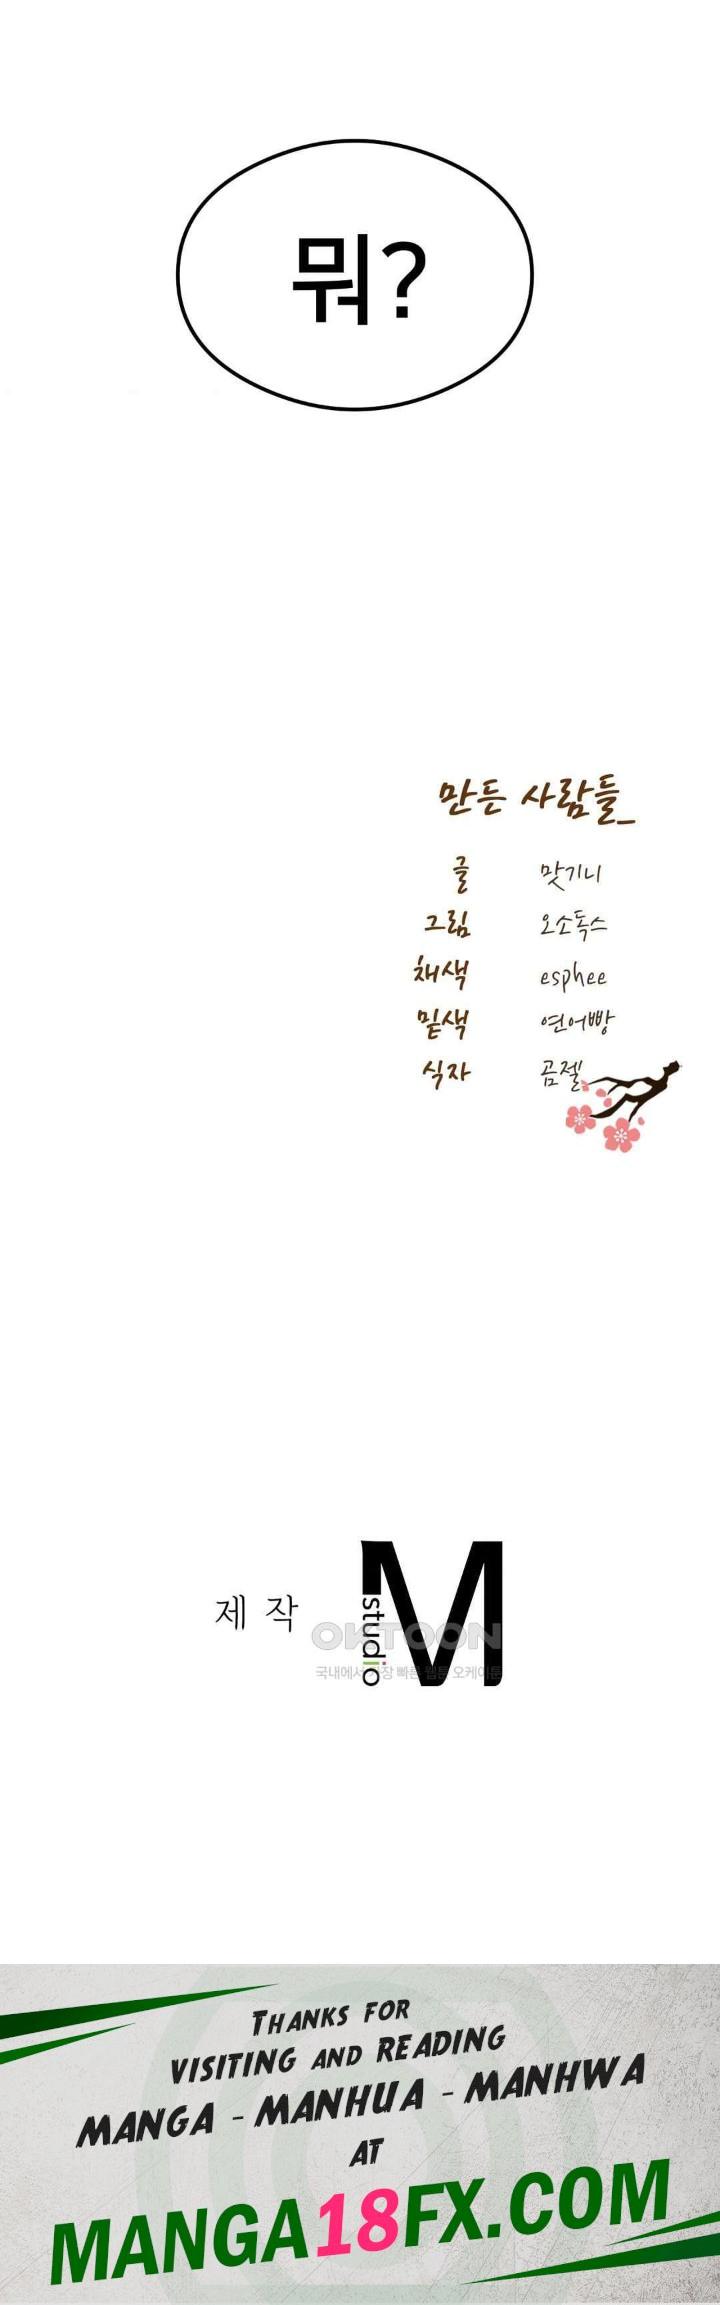 뭐?
만든 사람들_
글 맛기니
그림 오소독스
채색 esphee
밑색 연어빵
식자 곰젤
제작
studio M
OKTOON
국내에서 가장 빠른 웹툰 오케이툰
THANKS FOR
VISITING AND READING
MANGA - MANHUA - MANHWA
AT
MANGA18FX.COM